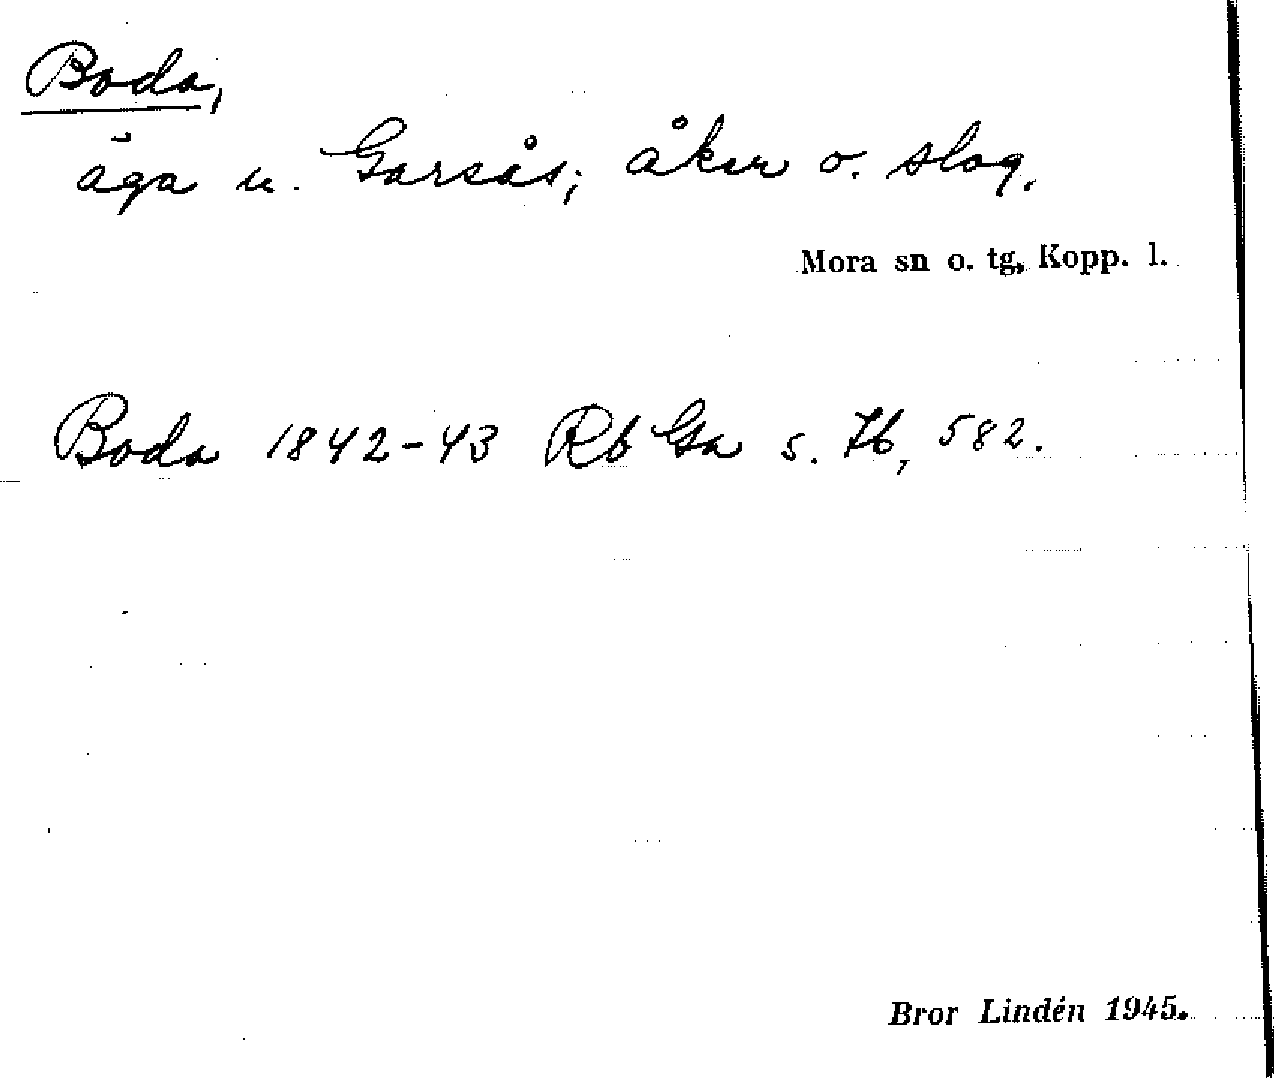 Boda,
äga u. Garsås; åker o. slog.
Mora sn o. tg, Kopp. l.
Boda 1842-43 Rb Ga s. 76, 582.
Bror Lindén 1945.